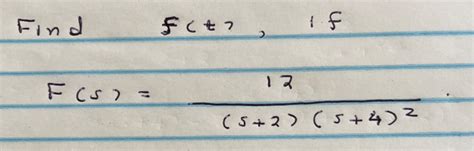 Find f(t), if
F(s) = 12 / (s+2)(s+4)².